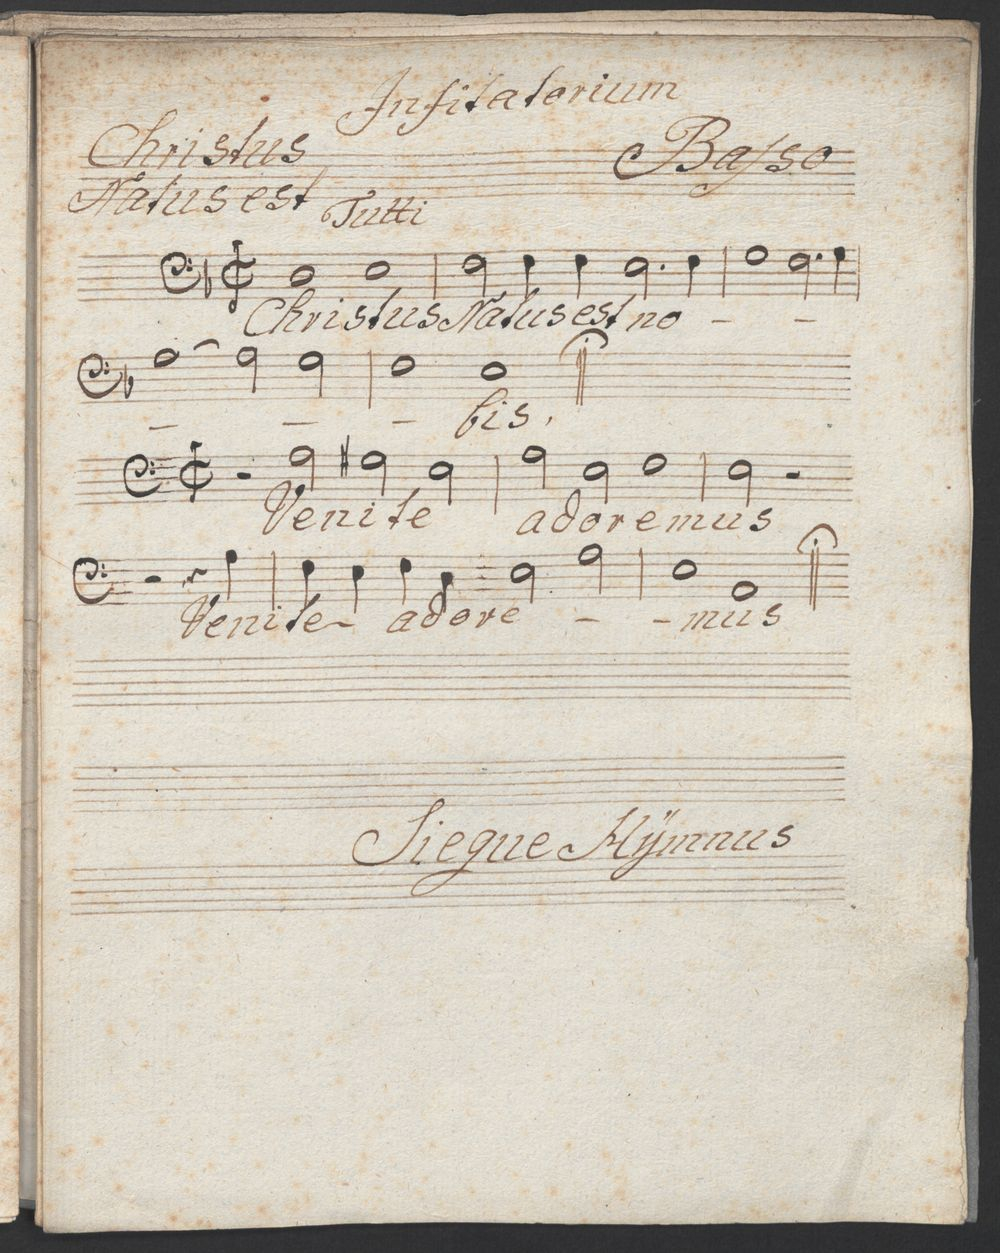 Infitatorium
Christus
Basso
Natus est
Tutti
Christus Natus est no - -
- - - bis.
Venite adoremus
Venite adore - - mus
Siegue Hÿmnus